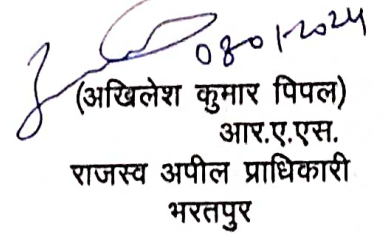 08012024
(अखिलेश कुमार पिपल)
आर.ए.एस.
राजस्व अपील प्राधिकारी
भरतपुर